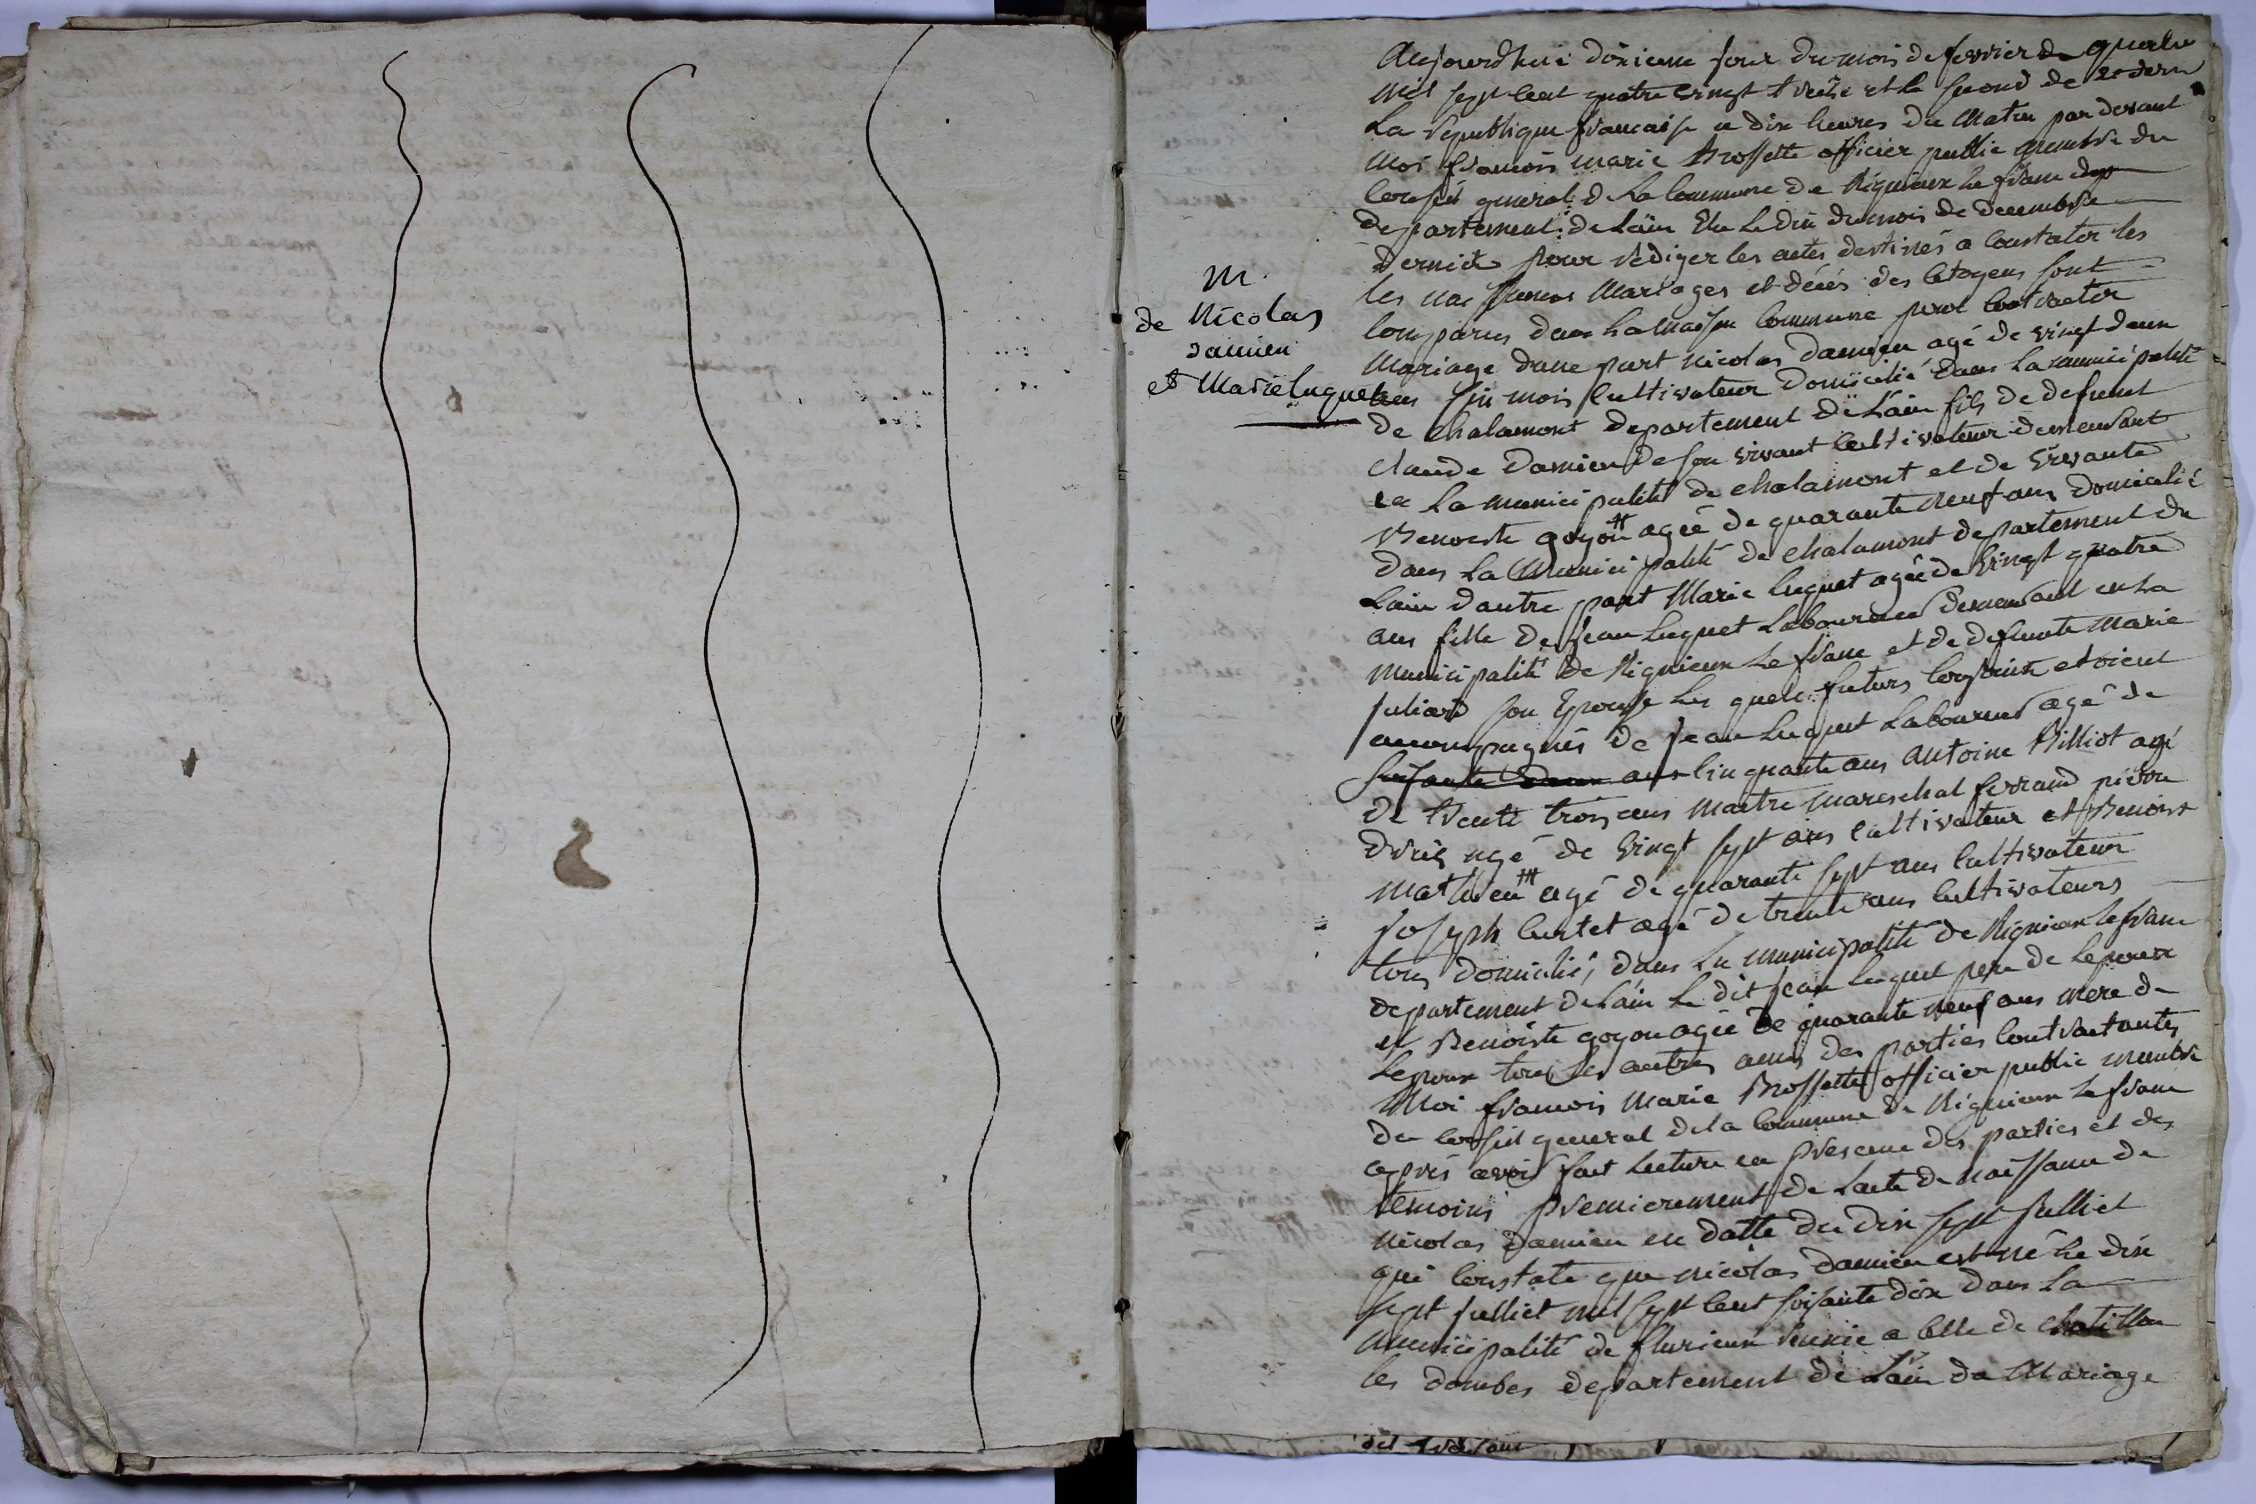 M.
de Nicolas
damien
et Marie luquet
Aujourdhui dixieme jour du mois de fevrier
mil sept cent quatre vingt treize et le second de
La republique francaise a dix heures du Matin par devant
Moi francois marie Brossette officier public membre du
Conseil general d La Commune de Rigneux Le franc
departement de Lain Elu Le dix du mois de decembre
dernier pour rediger les actes destinés a Constater les
les naissances Mariages et décés des Citoyens sont
Comparus dans La Maison Commune pour Contracter
Mariage dune part Nicolas damien agé de vingt deux
ans six mois Cultivateur domicilié dans La municipalité
de chalamont departement de Lain fils de defunt
claude damien de son vivant Cultivateur demeurant
en La municipalité de chalamont et de vivante
Benoiste goyon # agée de quarante neuf ans domicilié
dans La Municipalité de chalamont departement de
Lain dautre part Marie luquet agée de vingt quatre
ans fille de jean luquet Laboureur demeurant en La
Municipalité de Rigneux Le franc et de defunte Marie
juliard son Epouse Les quels futurs Conjoints etoient
accompagnés de jean Luquet Laboureur agé de
soisante deux ans Cinquante ans antoine Billiot agé
de trente trois ans Maitre mareschal ferrand pierre
druis agé de vingt sept ans Cultivateur et Benoist
Mathieu agé de quarante sept ans Cultivateur
joseph Curtet agé de trente ans Cultivateurs
tous domicilié dans La municipalité de Rignieux Le franc
departement de Lain Le dit jean Luquet pere de Lepouse
et Benoiste goyon agée de quarante neuf ans mere de
Lepoux tous Les autres amis des parties Contractantes
Moi francois Marie Brossette officier public membre
du Conseil general de la Commune de Rignieux Le franc
apres avoir fait Lecture en presence des parties et des
temoins premierement de Lacte de naissance de
Nicolas damien en datte du dix sept julliet
qui Constate que nicolas damien est né Le dix
sept julliet mil sept Cent soisante dix dans La
Municipalité de flurieux a Celle de chatillon
les dombes departement de Lain du Mariage